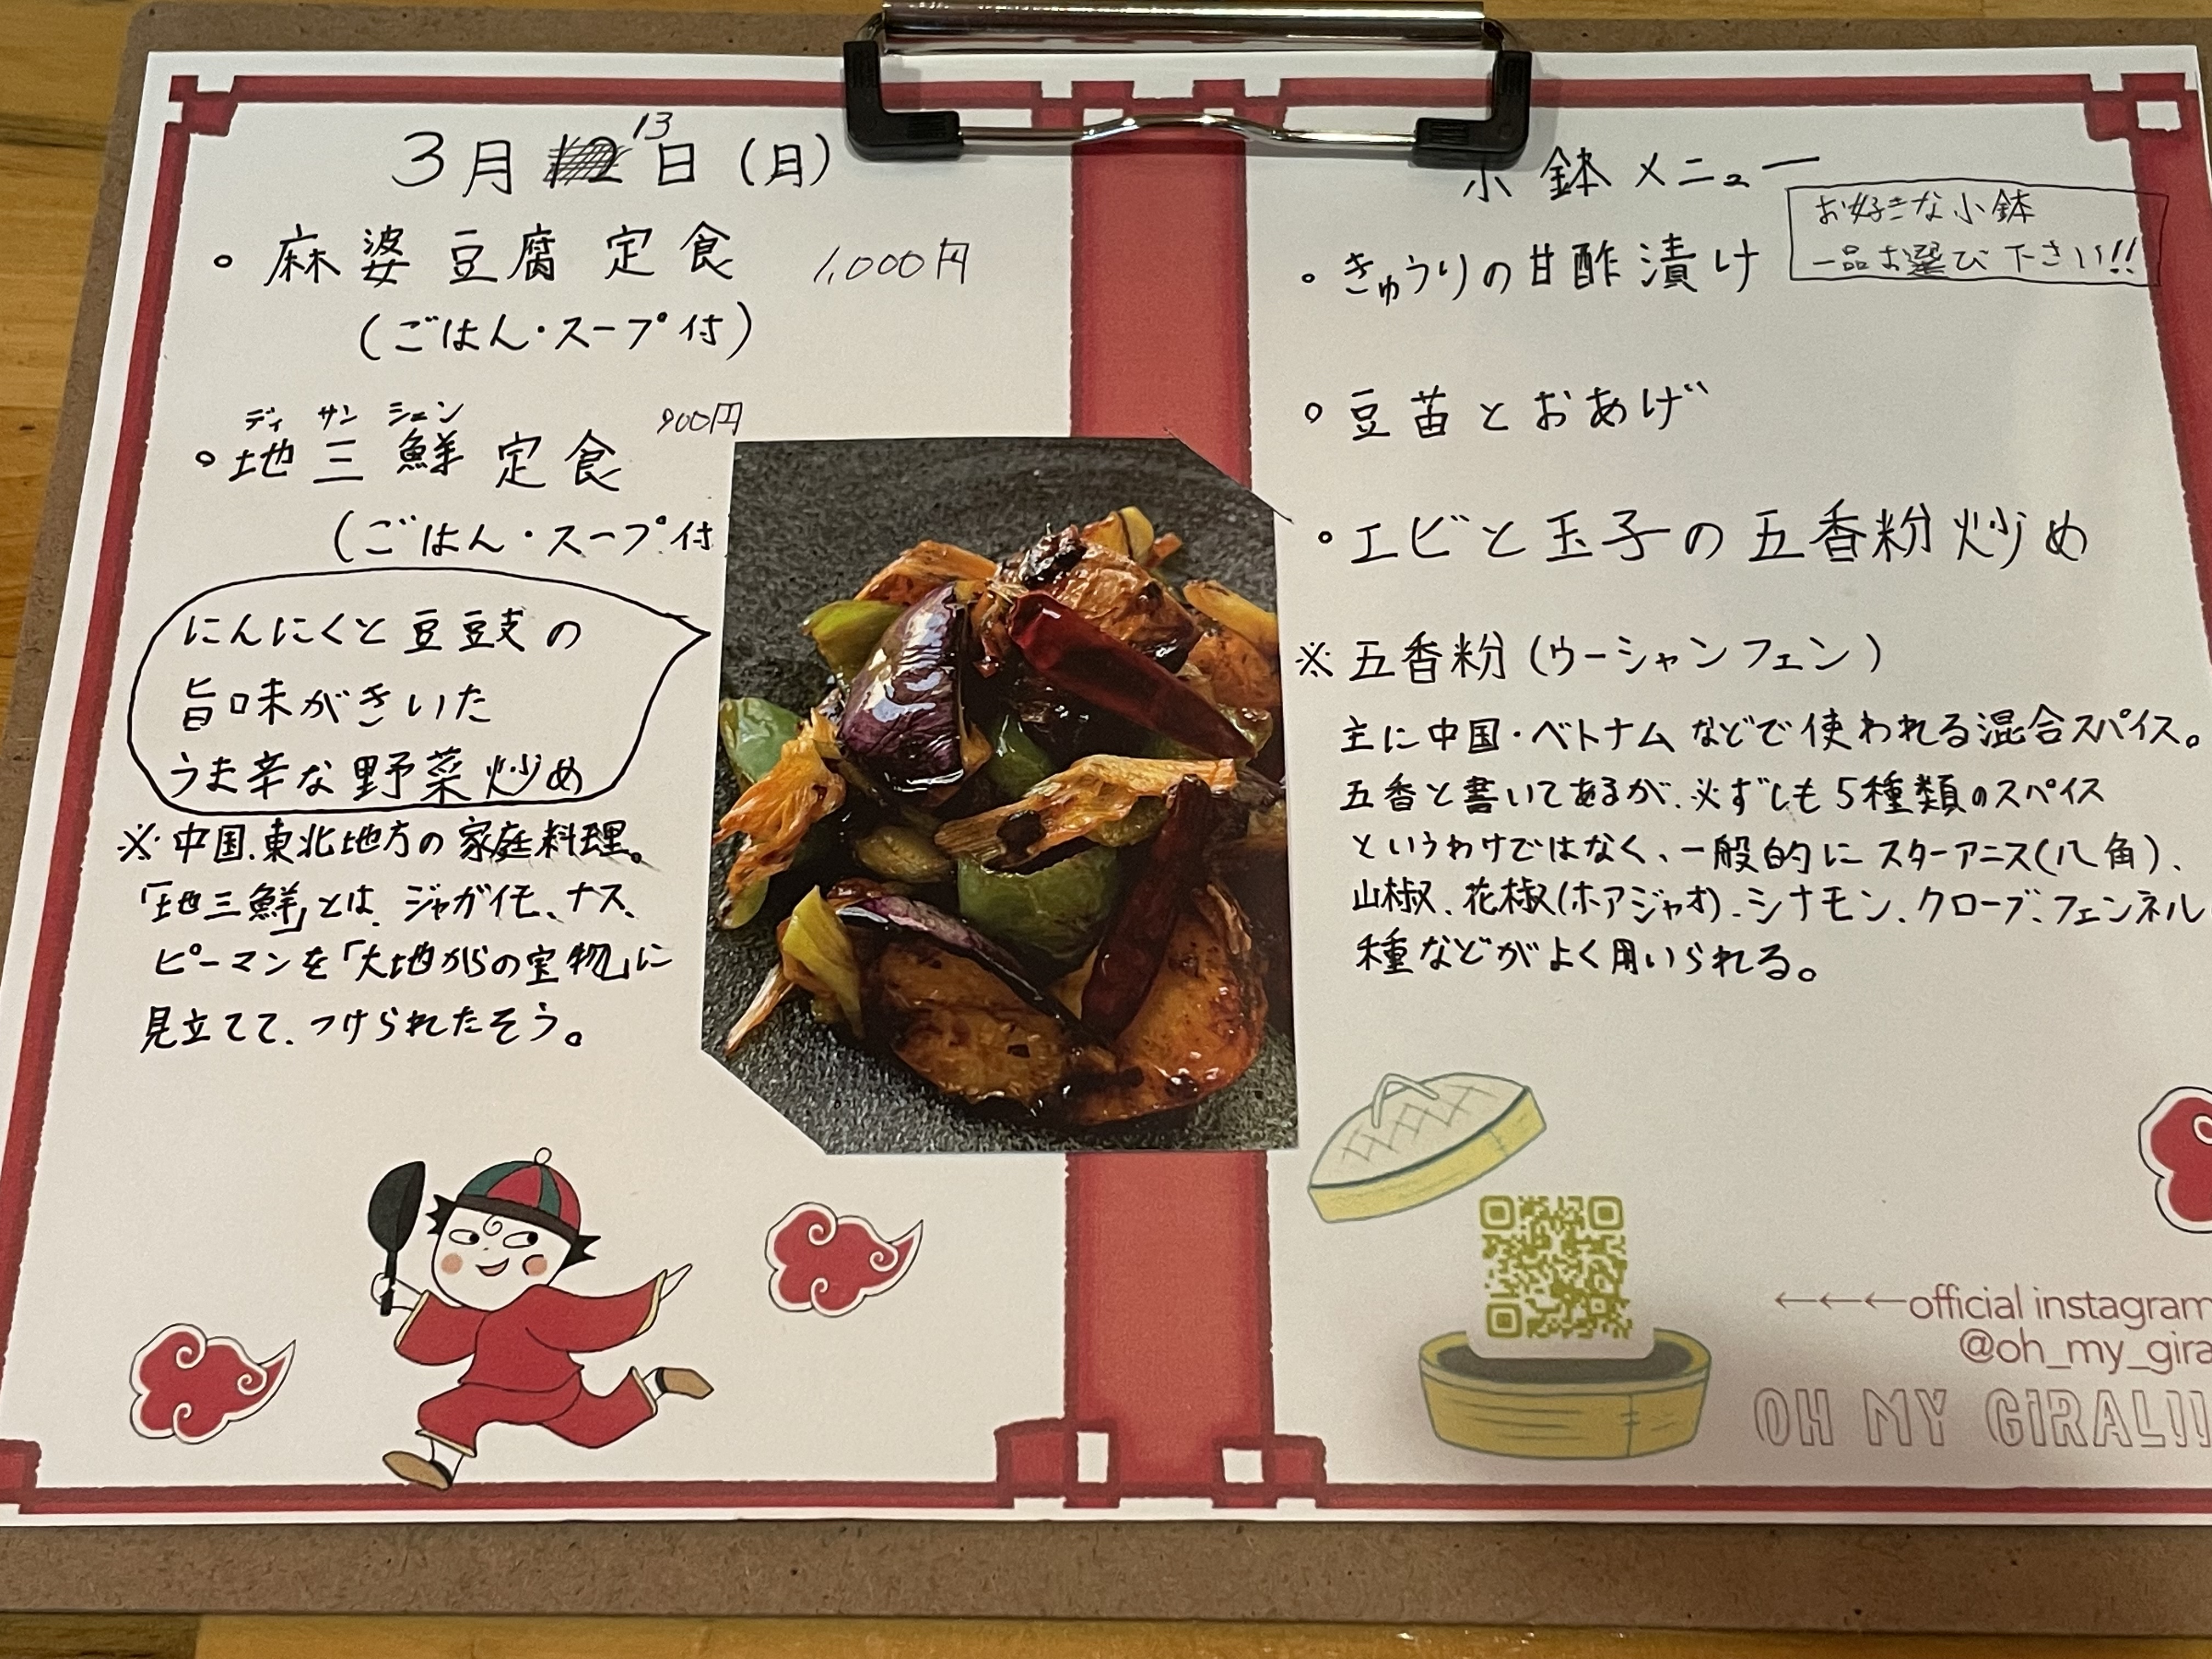 3月13日(月)
○ 麻婆豆腐定食 1,000円
(ごはん・スープ付)
ディ サン シェン
○ 地三鮮定食 900円
(ごはん・スープ付
にんにくと豆豉の
旨味がきいた
うま辛な野菜炒め
※中国、東北地方の家庭料理。
「地三鮮」とは、ジャガイモ、ナス、
ピーマンを「大地からの宝物」に
見立てて、つけられたそう。
小鉢メニュー
お好きな小鉢
一品お選び下さい!!
○ きゅうりの甘酢漬け
○ 豆苗とおあげ
○ エビと玉子の五香粉炒め
※五香粉(ウーシャンフェン)
主に中国・ベトナムなどで使われる混合スパイス。
五香と書いてあるが、必ずしも5種類のスパイス
というわけではなく、一般的にスターアニス(八角)、
山椒、花椒(ホアジャオ)、シナモン、クローブ、フェンネル
種などがよく用いられる。
←←←official instagram
@oh_my_gira
OH MY GIRAL!!